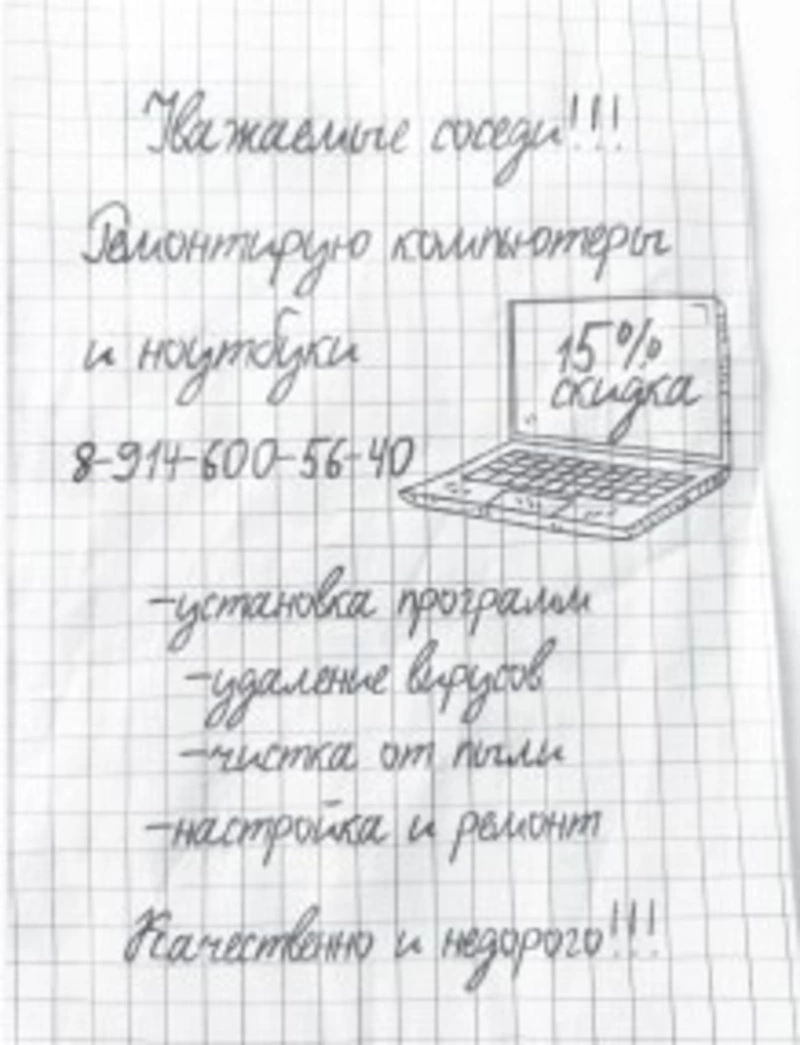 Уважаемые соседи!!!
Ремонтирую компьютеры
и ноутбуки
15%
скидка
8-914-600-56-40
-установка программ
-удаление вирусов
-чистка от пыли
-настройка и ремонт
Качественно и недорого!!!